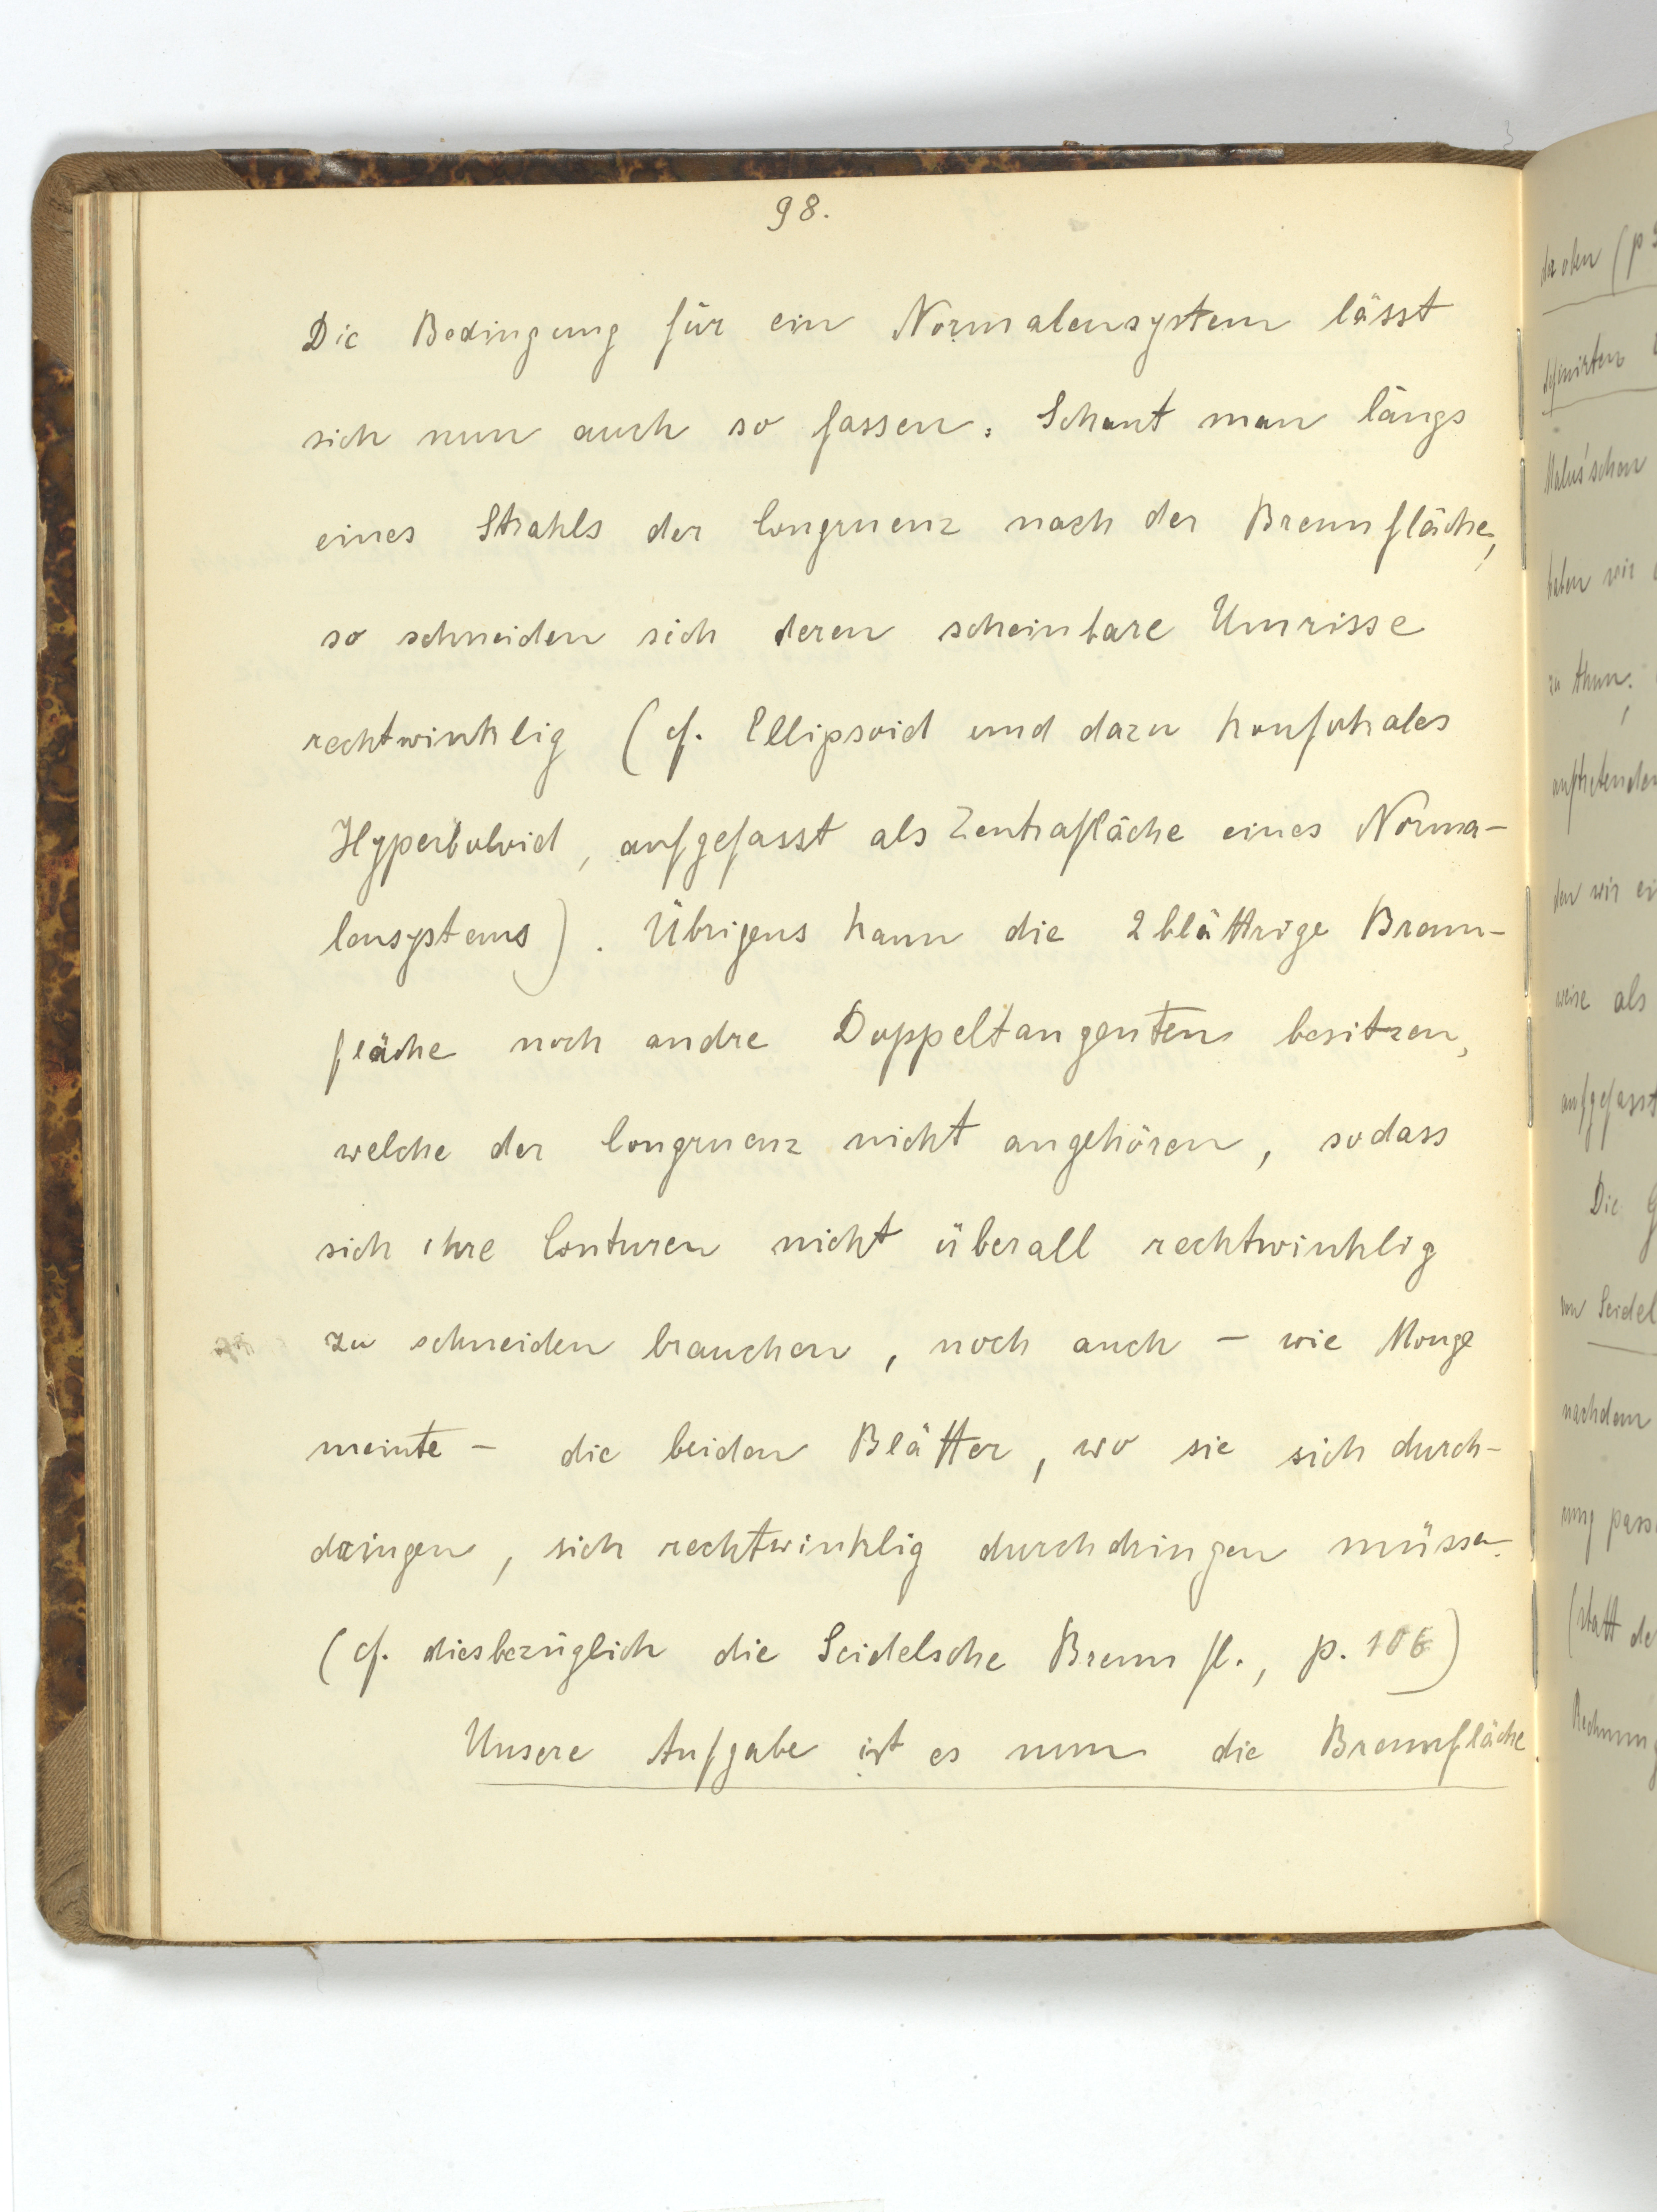 98.
Die Bedingung für ein Normalensystem lässt
sich nun auch so fassen: Schaut man längs
eines Strahls der Congruenz nach der Brennfläche,
so schneiden sich deren scheinbare Umrisse
rechtwinklig (cf. Ellipsoid und dazu konfokales
Hyperboloid, aufgefasst als Zentrafläche eines Norma-
lensystems). Übrigens kann die 2blättrige Brenn-
fläche noch andre Doppeltangenten besitzen,
welche der Congruenz nicht angehören, sodass
sich ihre Conturen nicht überall rechtwinklig
zu schneiden brauchen, noch auch – wie Monge
meinte – die beiden Blätter, wo sie sich durch-
dringen, sich rechtwinklig durchdringen müssen.
(cf. diesbezüglich die Seidelsche Brennfl., p. 106)
Unsere Aufgabe ist es nun die Brennfläche
der oben (p
Malus'schen
haben wir
zu thun;
auftretenden
den wir
weise als
aufgefasst
Die
von Seidel
nachdem
ung
(statt de
Rechnung